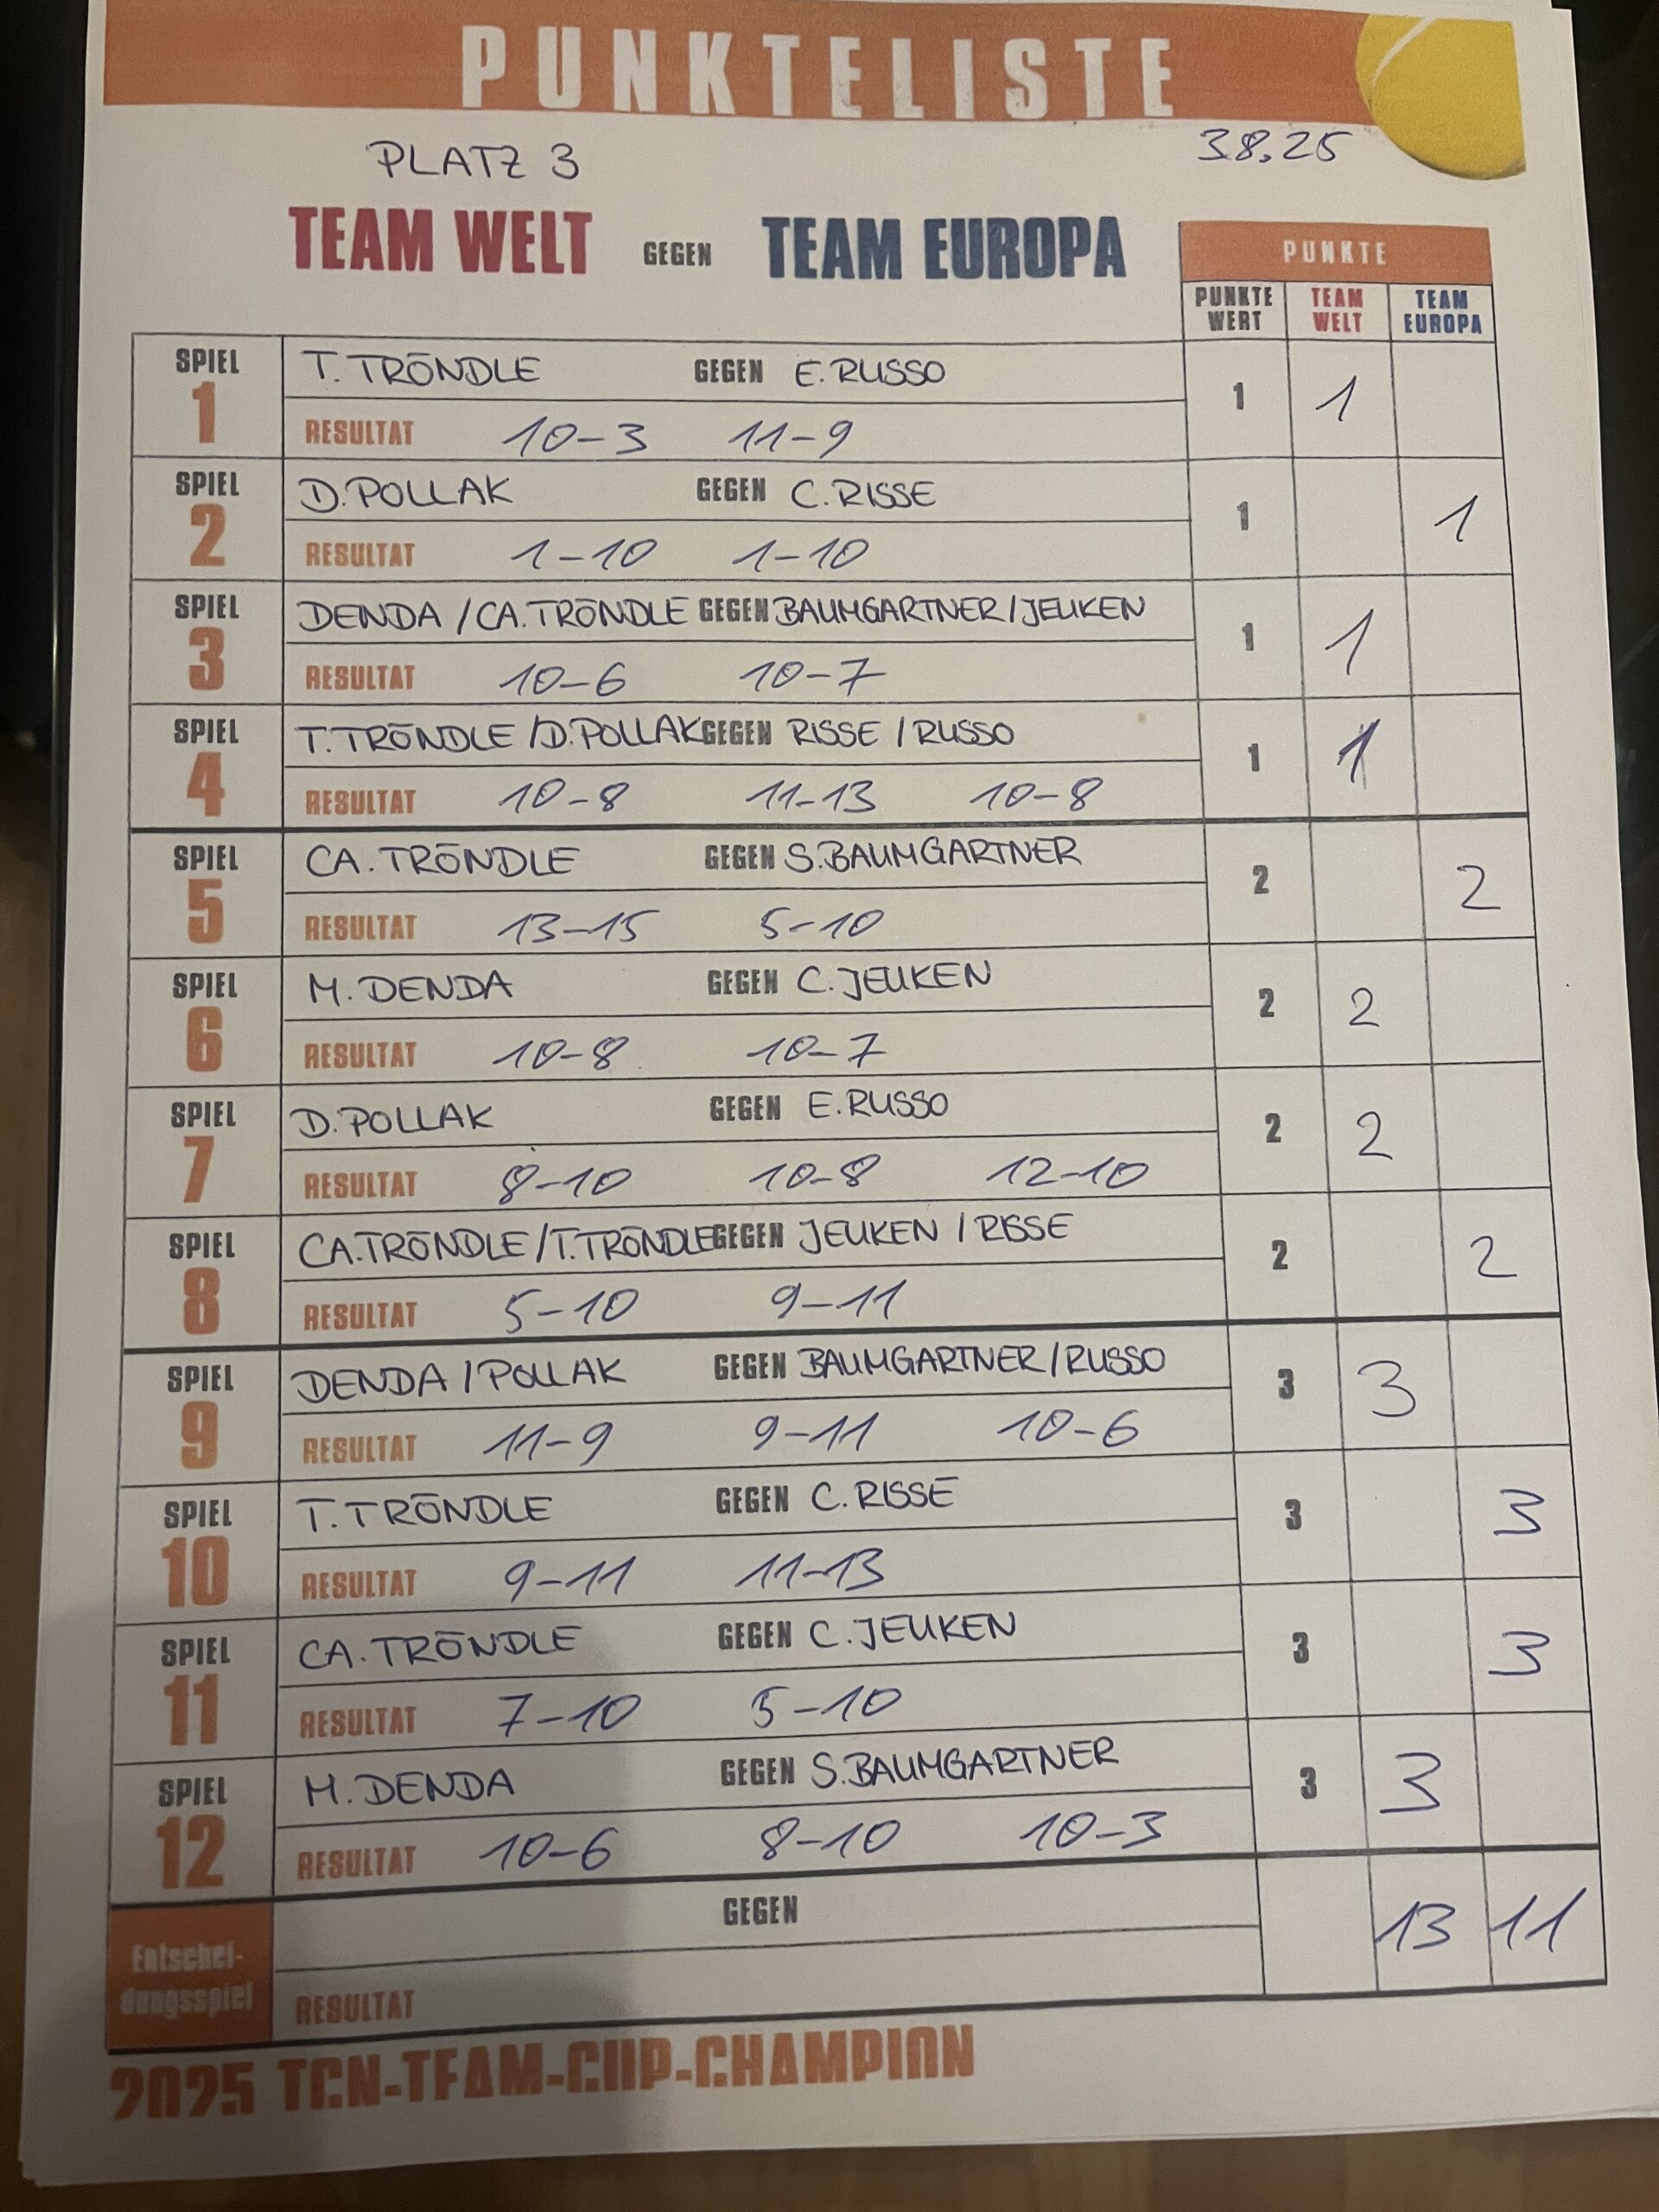 PUNKTELISTE
PLATZ 3 3.8.25
TEAM WELT GEGEN TEAM EUROPA
PUNKTE
PUNKTE WERT TEAM WELT TEAM EUROPA
SPIEL 1 T. TRÖNDLE GEGEN E. RUSSO 1 1
RESULTAT 10-3 11-9
SPIEL 2 D. POLLAK GEGEN C. RISSE 1 1
RESULTAT 1-10 1-10
SPIEL 3 DENDA / CA. TRÖNDLE GEGEN BAUMGARTNER / JEUKEN 1 1
RESULTAT 10-6 10-7
SPIEL 4 T. TRÖNDLE / D. POLLAK GEGEN RISSE / RUSSO 1 1
RESULTAT 10-8 11-13 10-8
SPIEL 5 CA. TRÖNDLE GEGEN S. BAUMGARTNER 2 2
RESULTAT 13-15 5-10
SPIEL 6 M. DENDA GEGEN C. JEUKEN 2 2
RESULTAT 10-8 10-7
SPIEL 7 D. POLLAK GEGEN E. RUSSO 2 2
RESULTAT 8-10 10-8 12-10
SPIEL 8 CA. TRÖNDLE / T. TRÖNDLE GEGEN JEUKEN / RISSE 2 2
RESULTAT 5-10 9-11
SPIEL 9 DENDA / POLLAK GEGEN BAUMGARTNER / RUSSO 3 3
RESULTAT 11-9 9-11 10-6
SPIEL 10 T. TRÖNDLE GEGEN C. RISSE 3 3
RESULTAT 9-11 11-13
SPIEL 11 CA. TRÖNDLE GEGEN C. JEUKEN 3 3
RESULTAT 7-10 5-10
SPIEL 12 M. DENDA GEGEN S. BAUMGARTNER 3 3
RESULTAT 10-6 8-10 10-3
Entschei-dungsspiel GEGEN 13 11
RESULTAT
2025 TCN-TEAM-CUP-CHAMPION